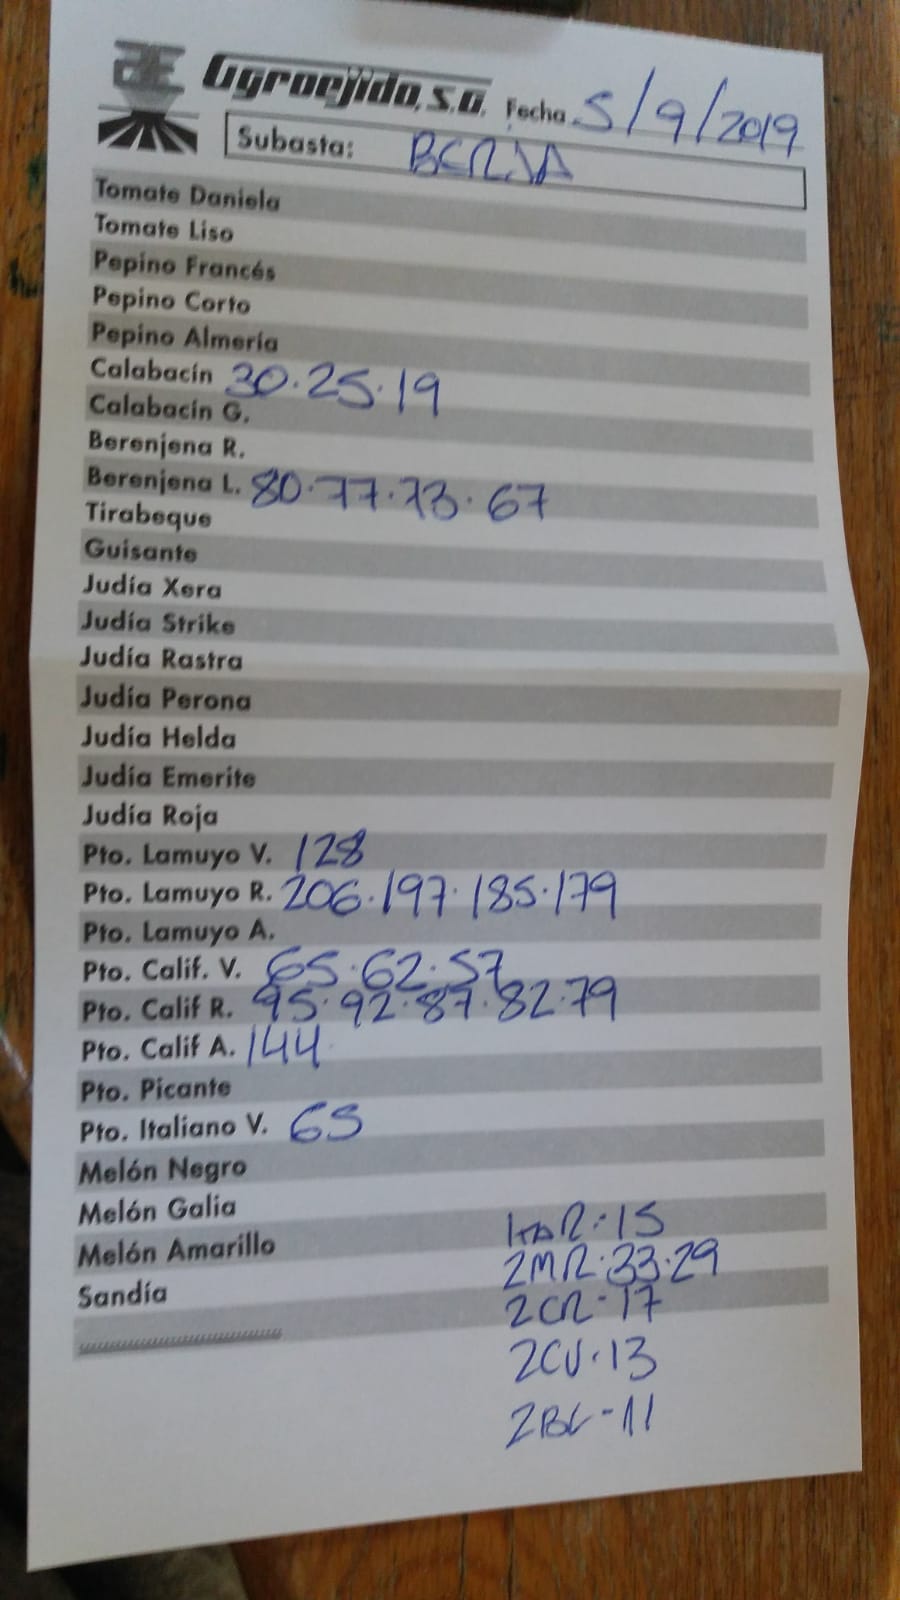 Agroejido, S.A. Fecha 5/9/2019
Subasta: BERJA
Tomate Daniela
Tomate Liso
Pepino Francés
Pepino Corto
Pepino Almería
Calabacín 30.25.19
Calabacín G.
Berenjena R.
Berenjena L. 80.77.73.67
Tirabeque
Guisante
Judía Xera
Judía Strike
Judía Rastra
Judía Perona
Judía Helda
Judía Emerite
Judía Roja
Pto. Lamuyo V. 128
Pto. Lamuyo R. 206.197.185.179
Pto. Lamuyo A.
Pto. Calif. V. 65.62.57
Pto. Calif R. 95.92.87.82.79
Pto. Calif A. 144
Pto. Picante
Pto. Italiano V. 65
Melón Negro
Melón Galia
Melón Amarillo
Sandía
15
2MR.33.29
2CR-17
2CV.13
2BL-11